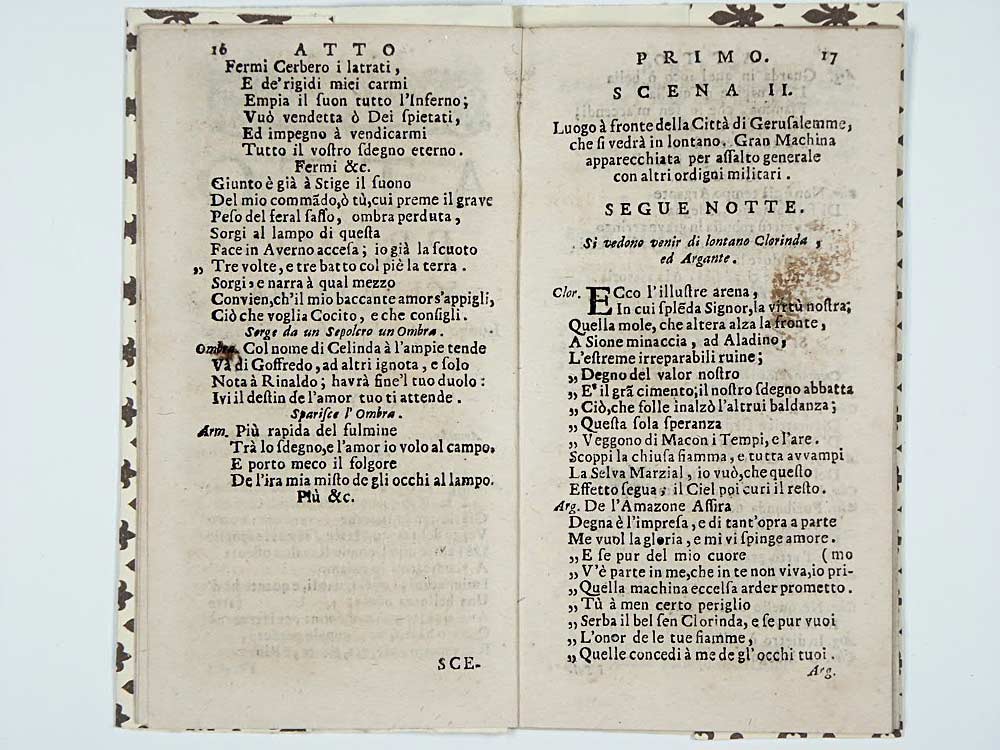 16 ATTO
Fermi Cerbero i latrati,
E de'rigidi miei carmi
Empia il ſuon tutto l'Inferno;
Vuò vendetta ò Dei ſpietati,
Ed impegno à vendicarmi
Tutto il voſtro ſdegno eterno.
Fermi &c.
Giunto è già à Stige il ſuono
Del mio commãdo,ò tù,cui preme il grave
Peſo del feral ſaſſo, ombra perduta,
Sorgi al lampo di queſta
Face in Averno acceſa; io già la ſcuoto
„ Tre volte, e tre batto col piè la terra.
Sorgi, e narra à qual mezzo
Convien,ch'il mio baccante amor s'appigli,
Ciò che voglia Cocito, e che conſigli.
Sorge da un Sepolcro un Ombra.
Ombra. Col nome di Celinda à l'ampie tende
Và di Goffredo, ad altri ignota, e ſolo
Nota à Rinaldo; havrà fine'l tuo duolo:
Ivi il deſtin de l'amor tuo ti attende.
Sparisce l'Ombra.
Arm. Più rapida del fulmine
Trà lo ſdegno,e l'amor io volo al campo.
E porto meco il folgore
De l'ira mia miſto de gli occhi al lampo.
Più &c.
SCE-
PRIMO. 17
SCENA II.
Luogo à fronte della Città di Geruſalemme,
che ſi vedrà in lontano. Gran Machina
apparecchiata per aſſalto generale
con altri ordigni militari.
SEGUE NOTTE.
Si vedono venir di lontano Clorinda,
ed Argante.
Clor. ECco l'illuſtre arena,
In cui ſplẽda Signor,la virtù noſtra;
Quella mole, che altera alza la fronte,
A Sione minaccia, ad Aladino,
L'eſtreme irreparabili ruine;
„ Degno del valor noſtro
„ E' il grã cimento; il noſtro ſdegno abbatta
„ Ciò,che folle inalzò l'altrui baldanza;
„ Queſta ſola ſperanza
„ Veggono di Macon i Tempi, e l'are.
Scoppi la chiuſa fiamma, e tutta avvampi
La Selva Marzial, io vuò,che queſto
Effetto ſegua, il Ciel poi curi il reſto.
Arg. De l'Amazone Aſſira
Degna è l'impreſa, e di tant'opra a parte
Me vuol la gloria, e mi vi ſpinge amore.
„ E ſe pur del mio cuore (mo
„ V'è parte in me,che in te non viva,io pri-
„ Quella machina eccelſa arder prometto.
„ Tù à men certo periglio
„ Serba il bel ſen Clorinda, e ſe pur vuoi
„ L'onor de le tue fiamme,
„ Quelle concedi à me de gl'occhi tuoi.
Arg.